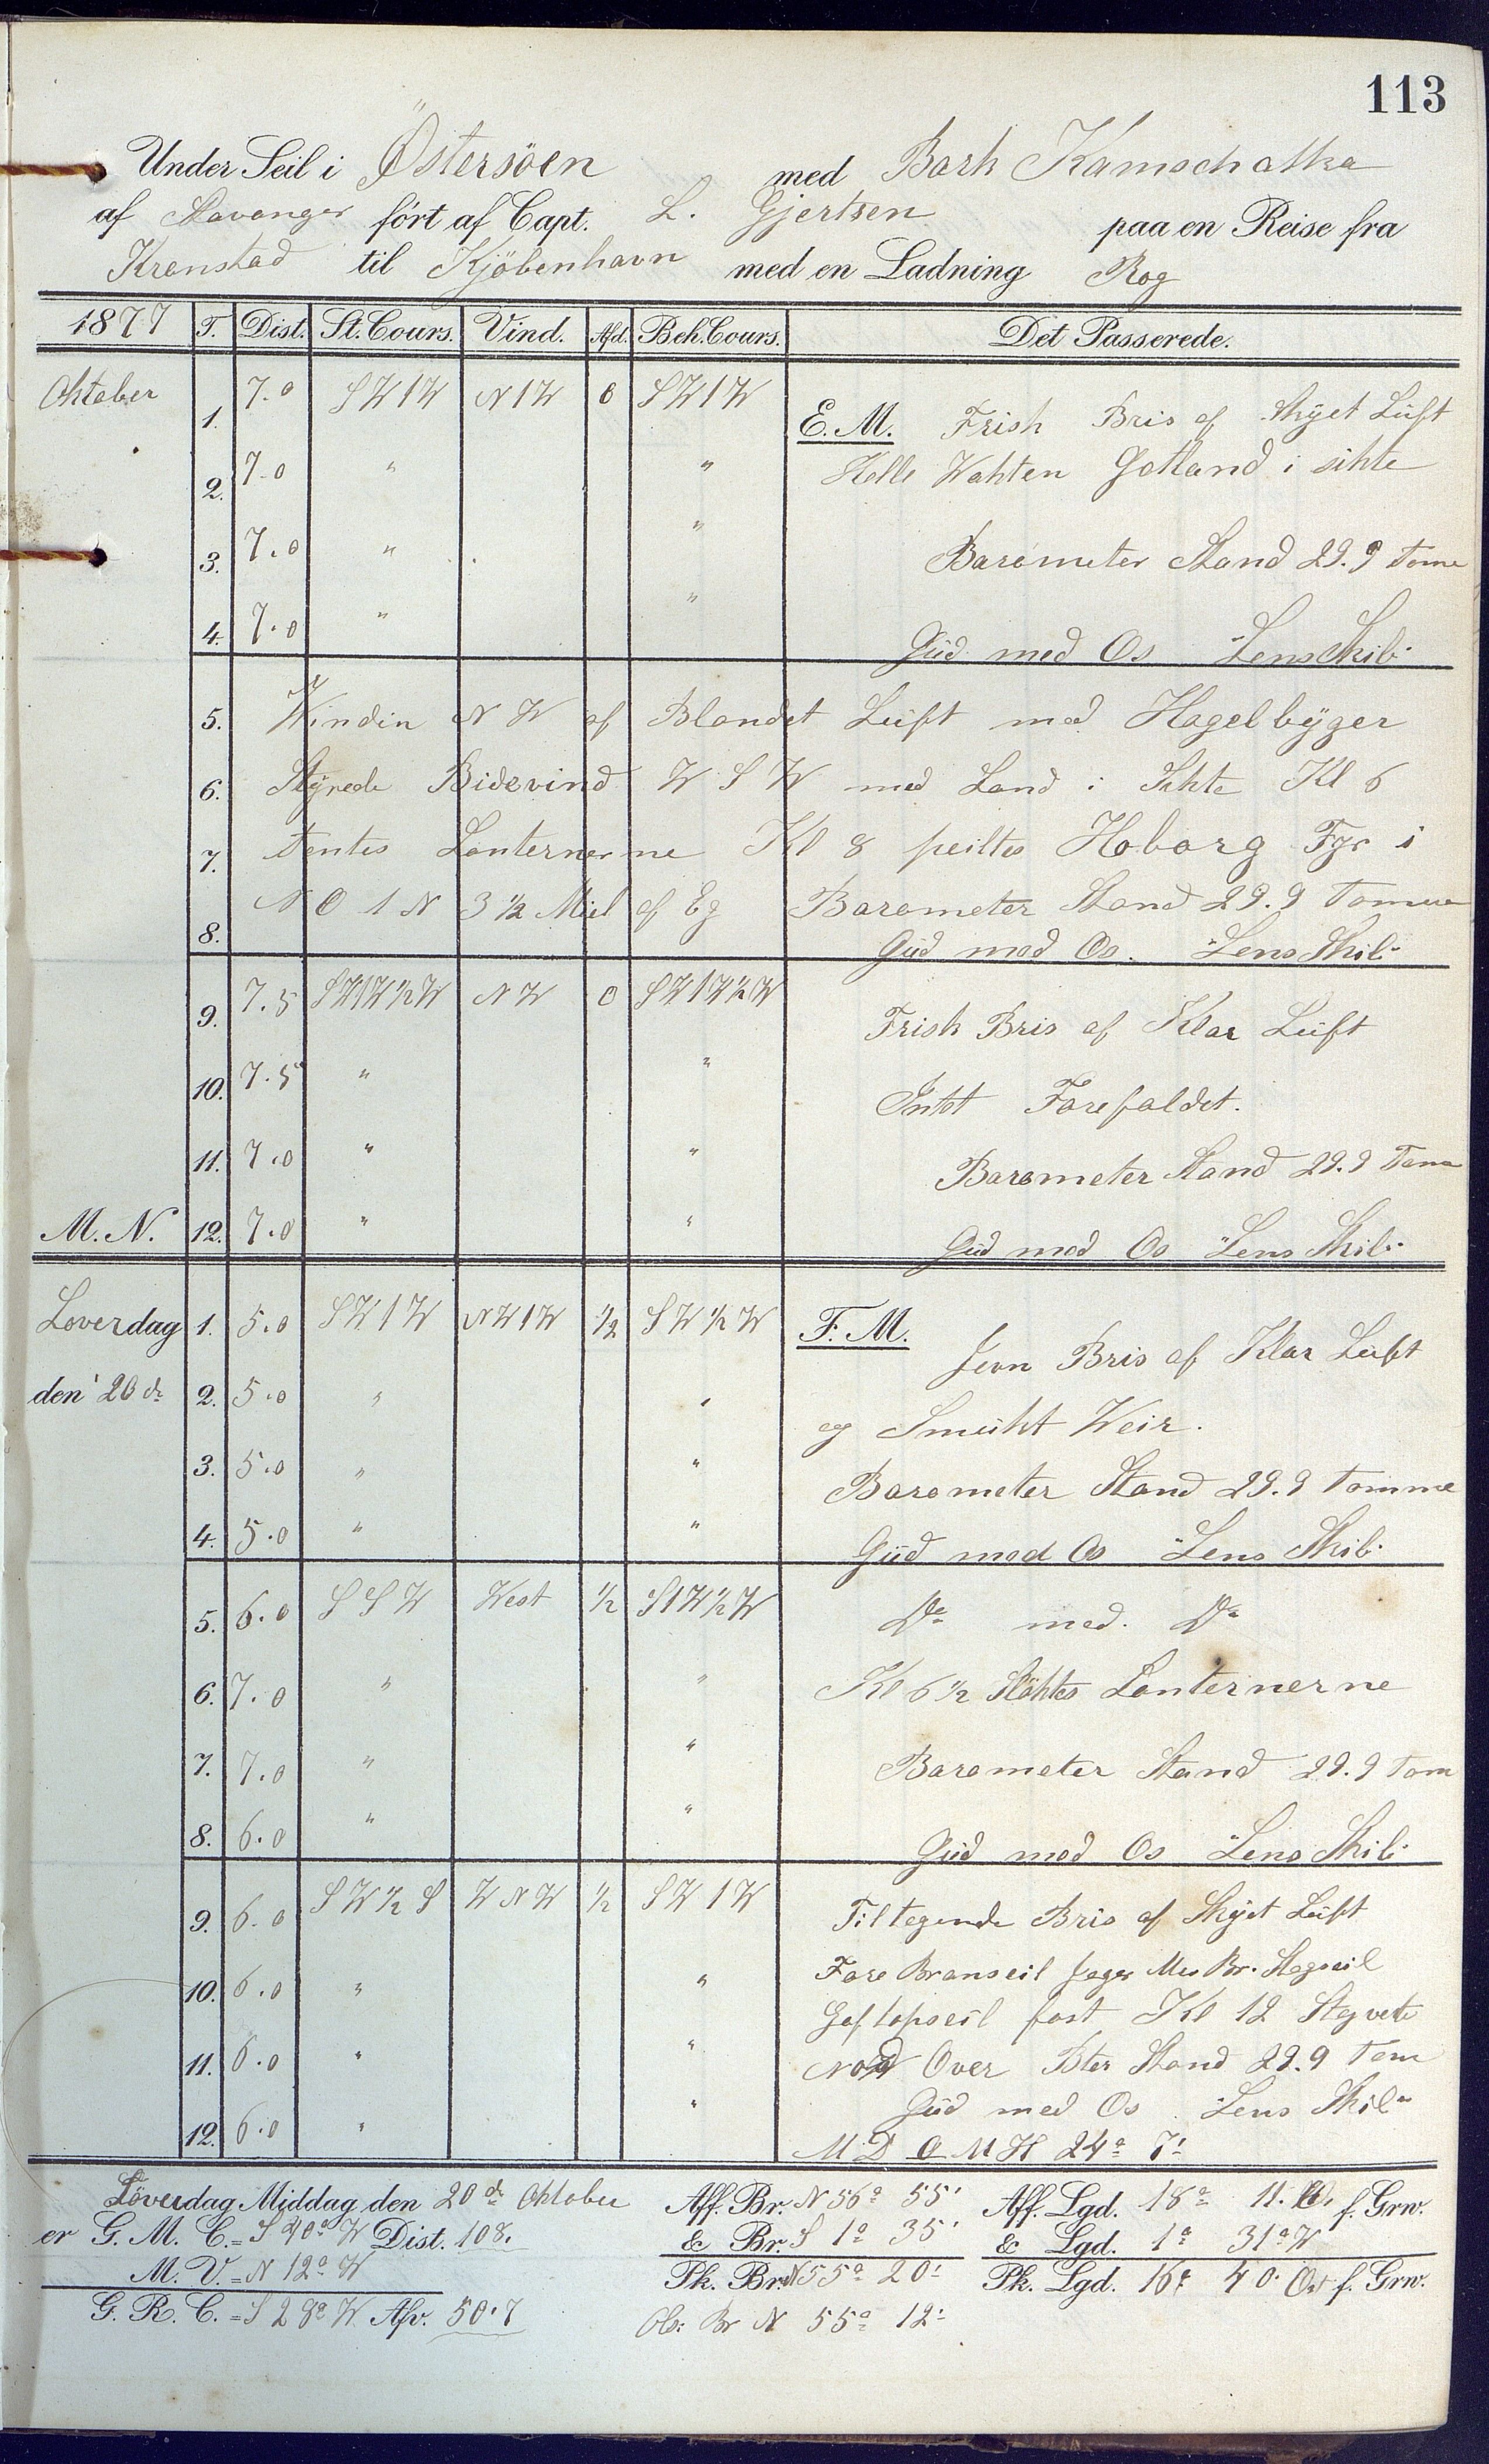 113
Under Seil i Östersöen med Bark Kamschatka
af Stavanger fört af Capt. L. Gjertsen paa en Reise fra
Kronstad til Kjöbenhavn med en Ladning Rog
1877 T. Dist. St. Cours. Vind. Afd. Beh. Cours. Det Passerede.
Oktober 1. 7.0 S W 1 W N 1 W 0 S W 1 W E. M. Frisk Bris af Skyet Lüft
2. 7.0 " " Helle Wakten Gotland i sikte
3. 7.0 " " Barometer Stand 29.9 Tome
4. 7.0 " " Güd med Os Lens Skib
5. Windin N W af Blandet Lüft med Hagelbÿger
6. Stÿrede Bidevind W S W med Land i Sikte Kl 6
7. tentes Lanternerne Kl 8 peiltes Hoborg Fyr i
8. N O 1 N 3 ½ Miil af Eg Barometer Stand 29.9 Tomme
Gud med Os. Lens Skib
9. 7.5 S W 1 W ½ W N W 0 S W 1 W ½ W Frisk Bris af Klar Lüft
10. 7.5 " " Intet Forefaldet.
11. 7.0 " " Barometer Stand 29.9 Tome
M. N. 12. 7.0 " " Güd med Os Lens Skib
Loverdag 1. 5.0 S W 1 W N W 1 W ½ S W ½ W F. M. Jevn Bris af Klar Lüft
den 20 de 2. 5.0 " " og Smükt Weir.
3. 5.0 " " Barometer Stand 29.9 Tomme
4. 5.0 " " Güd med Os Lens Skib
5. 6.0 S S W West ½ S 1 W ½ W Do med. Do
6. 7.0 " " Kl 6 ½ Slöktes Lanternerne
7. 7.0 " " Barometer Stand 29.9 Tom
8. 6.0 " " Güd med Os Lens Skib
9. 6.0 S W ½ S W N W ½ S W 1 W Tiltagende Bris af Skÿet Lüft
10. 6.0 " " Fore Bramseil Jager Mes Br. Stagseil
Gaftopseil fast Kl 12 Stagvete
11. 6.0 " " Nord Over Bter Stand 29.9 Tom
12. 6.0 " " Güd med Os Lens Skib
M D O M H 24° 7'
Löverdag Middag den 20 de Oktober Aff. Br. N 56° 55' Aff. Lgd. 18° 11. f. Grw.
er G. M. C. = S 40° W Dist. 108. & Br. S 1° 35' & Lgd. 1° 31° W
M. V. = N 12° W Pk. Br. N 55° 20' Pk. Lgd. 16° 40' Ost f. Grw.
G. R. C. = S 28° W Afv. 50'7 Obs: Br N 55° 12'